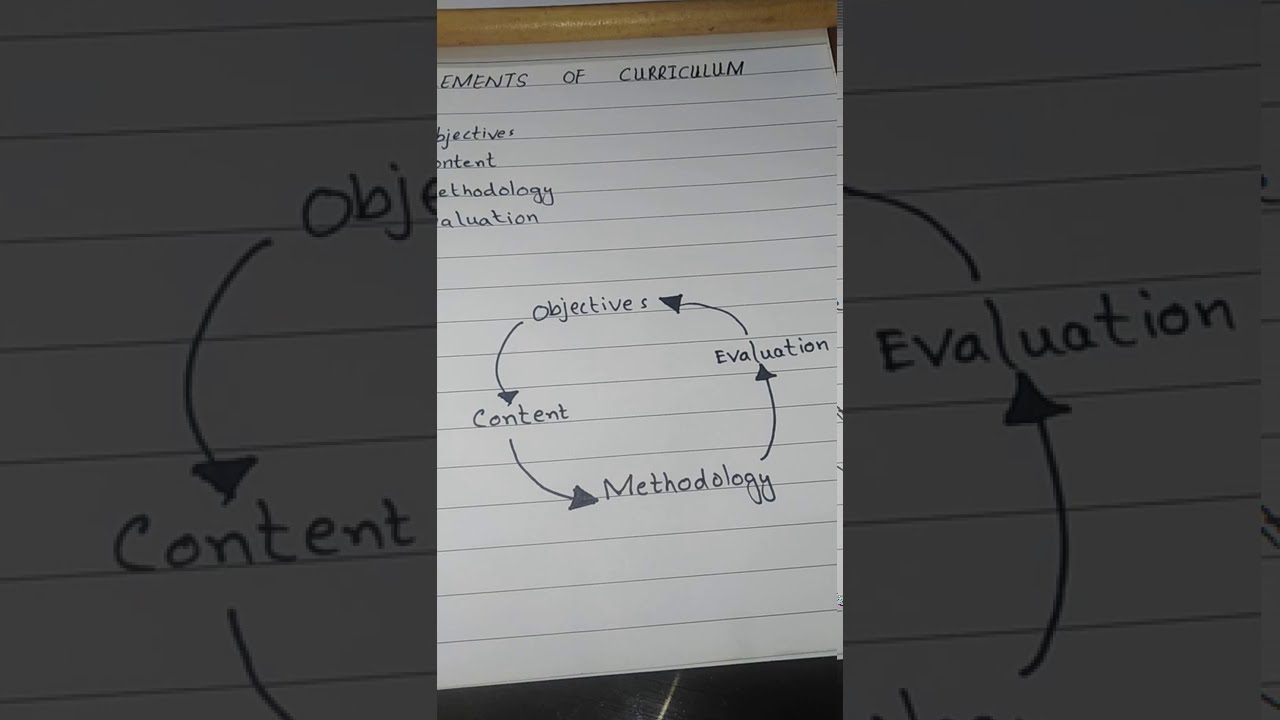 EMENTS OF CURRICULUM
bjectives
ontent
ethodology
aluation
Objectives
Evaluation
Content
Methodology
Obje
Evaluation
Content